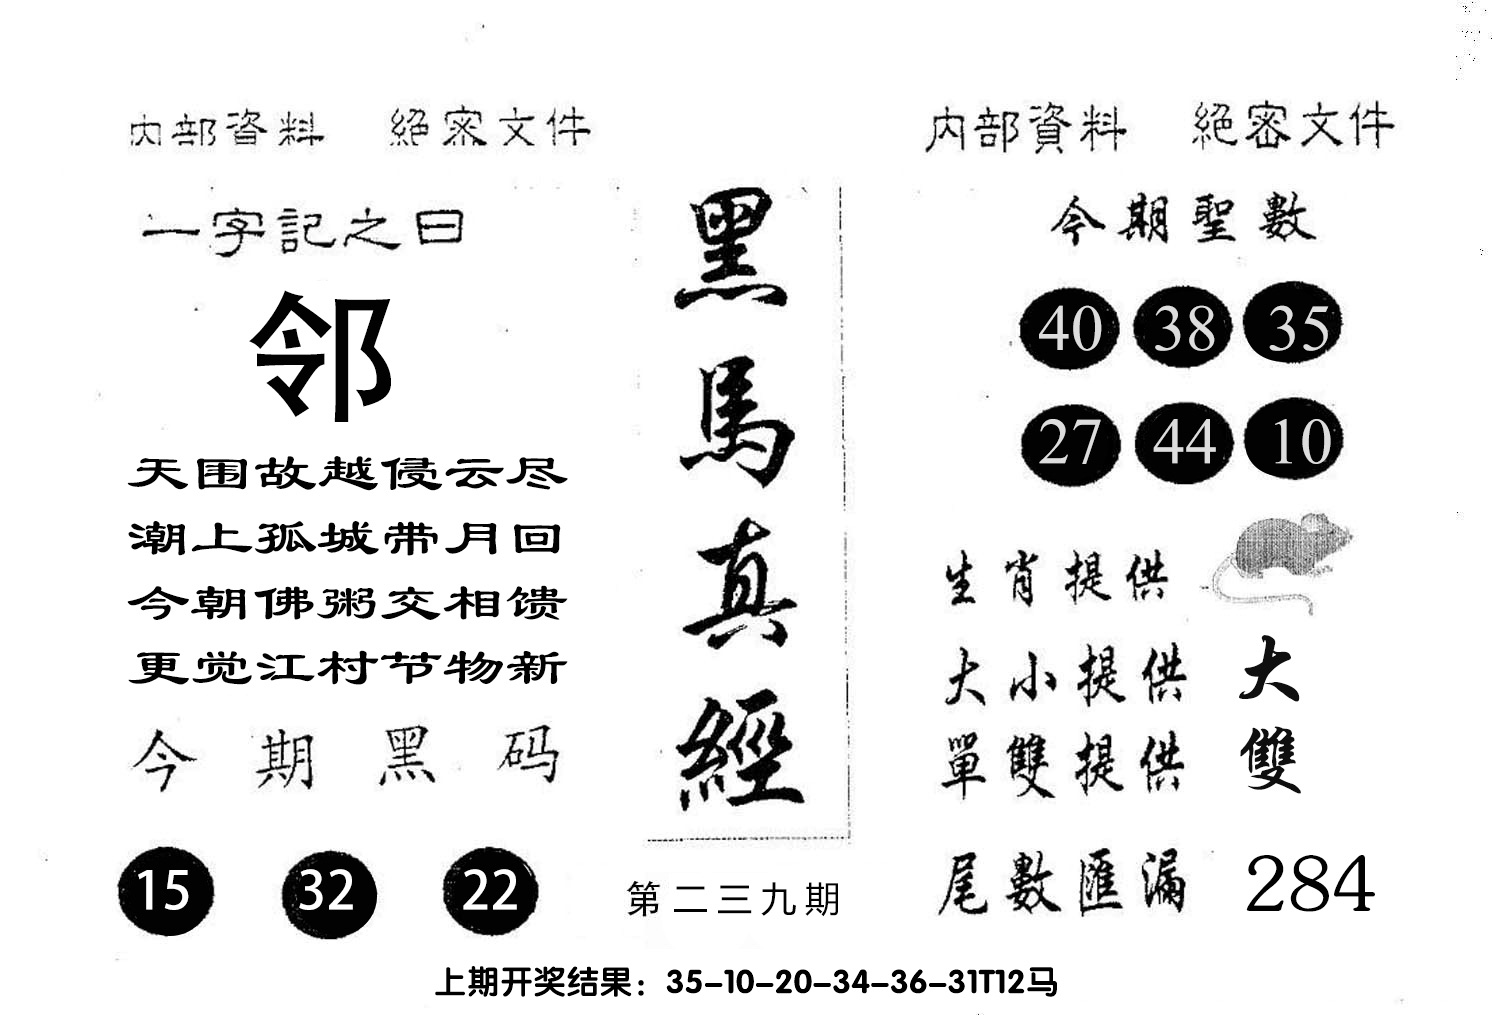 内部資料 絕密文件
一字記之曰
邻
天围故越侵云尽
潮上孤城带月回
今朝佛粥交相馈
更觉江村节物新
今期黑码
15 32 22
黑馬真經
第二三九期
内部資料 絕密文件
今期聖數
40 38 35
27 44 10
生肖提供
大小提供 大
單雙提供 雙
尾數匯漏 284
上期开奖结果：35-10-20-34-36-31T12马